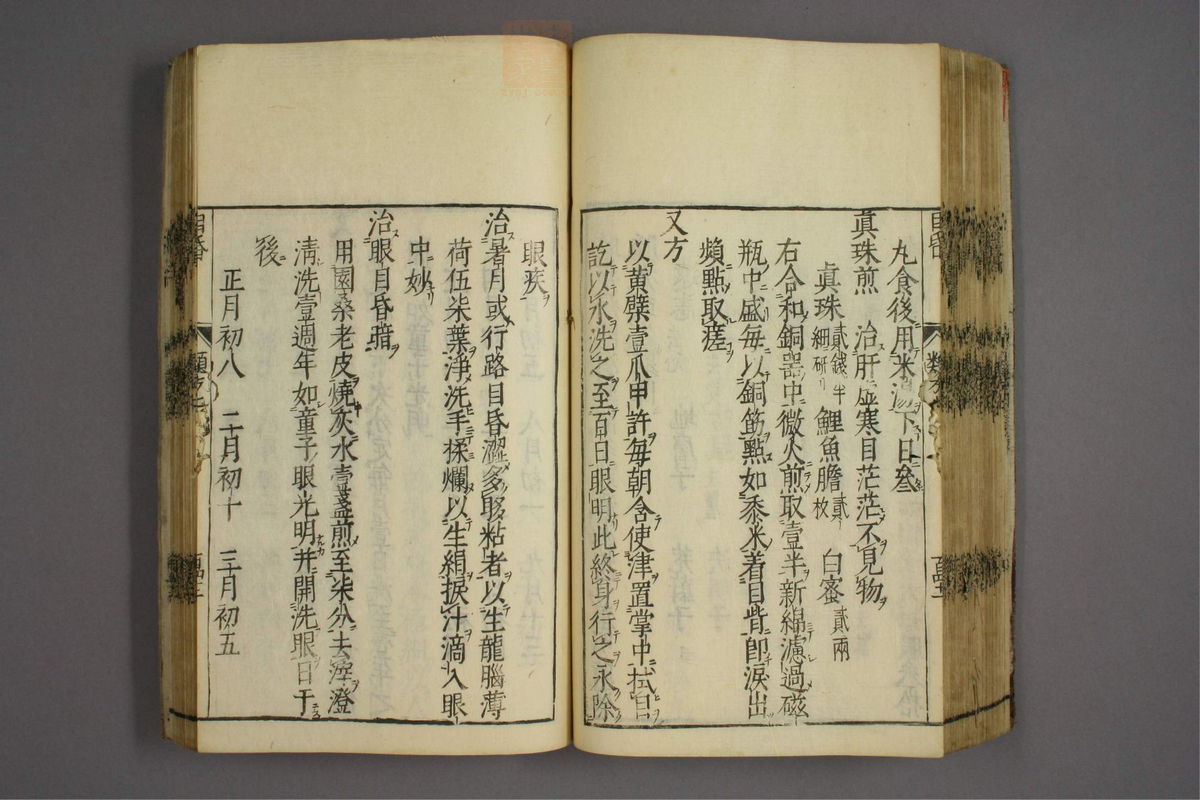 丸食後用米湯下日叄
眞珠煎　治肝虛寒目茫茫不見物
眞珠貳錢半細研　鯉魚膽貳枚　白蜜貳兩
右合和銅噐中微火煎取壹半新綿濾過磁
瓶中盛每以銅筯點如黍米着目眥卽淚出
頻點取瘥
又方
以黄檗壹爪甲許每朝含使津置掌中拭目
訖以水洗之至百日眼明此終身行之永除
眼疾
治暑月或行路目昏澀多眵粘者以生龍腦薄
荷伍柒葉淨洗手揉爛以生絹捩汁滴入眼
中妙
治眼目昏暗
用園桑老皮燒灰水壹盞煎至柒分去滓澄
淸洗壹週年如童子眼光明幷開洗眼日于
後
正月初八　二月初十　三月初五